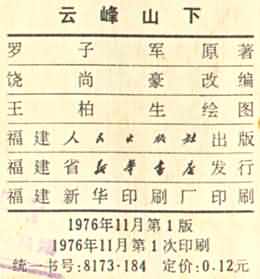 云峰山下
罗子军原著
饶尚豪改编
王柏生绘图
福建人民出版社出版
福建省新华书店发行
福建新华印刷厂印刷
1976年11月第1版
1976年11月第1次印刷
统一书号:8173·184 定价:0.12元